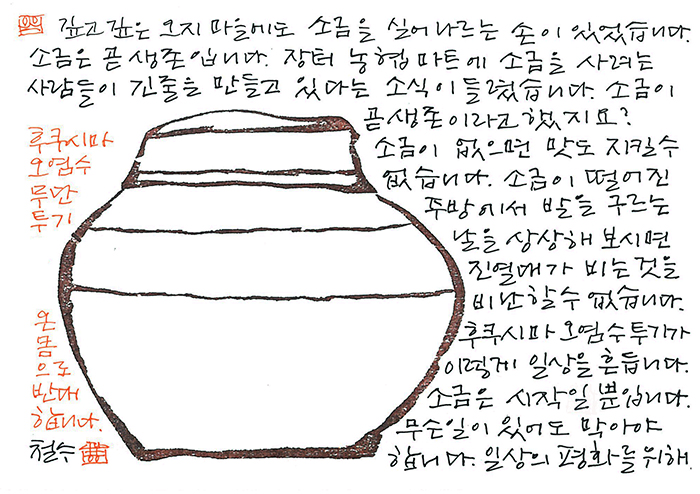 깊고 깊은 오지 마을에도 소금을 실어나르는 손이 있었습니다.
소금은 곧 생존입니다. 장터 농협 마트에 소금을 사려는
사람들이 긴줄을 만들고 있다는 소식이 들렸습니다. 소금이
곧 생존이라고 했지요?
소금이 없으면 맛도 지킬수
없습니다. 소금이 떨어진
주방에서 발을 구르는
날을 상상해 보시면
진열대가 비는 것을
비난할 수 없습니다.
후쿠시마 오염수 투기가
이렇게 일상을 흔듭니다.
소금은 시작일 뿐입니다.
무슨일이 있어도 막아야
합니다. 일상의 평화를 위해.
후쿠시마
오염수
무단
투기
온
몸
으로
반대
합니다.
철수